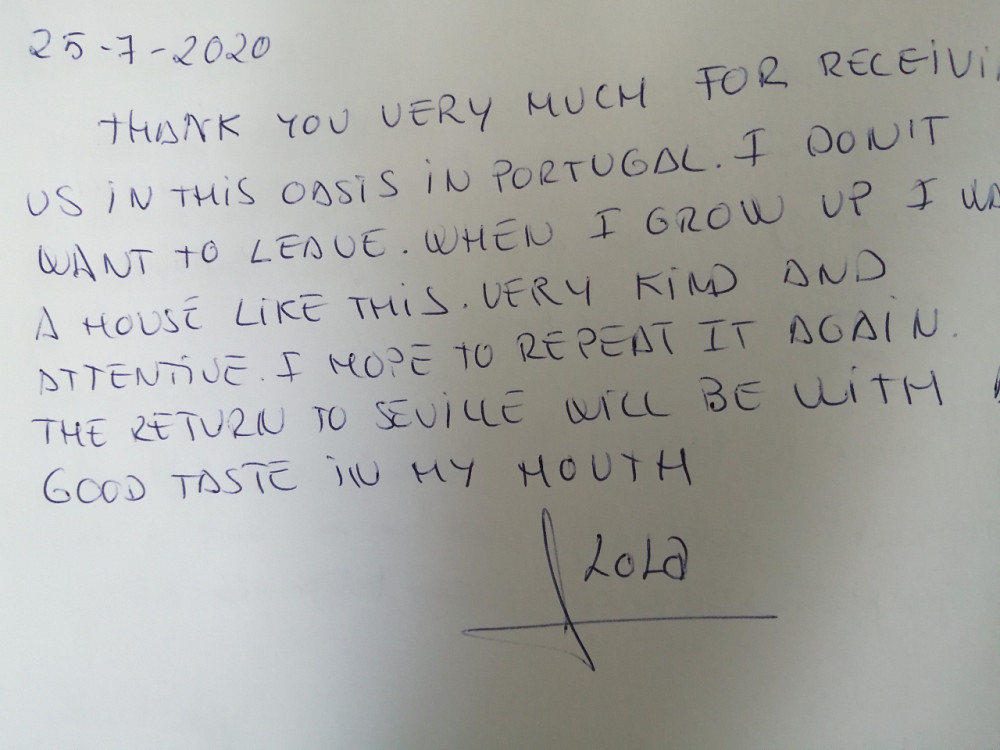 25-7-2020
THANK YOU VERY MUCH FOR RECEIVI
US IN THIS OASIS IN PORTUGAL. I DON'T
WANT TO LEAVE. WHEN I GROW UP I WA
A HOUSE LIKE THIS. VERY KIND AND
ATTENTIVE. I HOPE TO REPEAT IT AGAIN.
THE RETURN TO SEVILLE WILL BE WITH
GOOD TASTE IN MY MOUTH
Lola